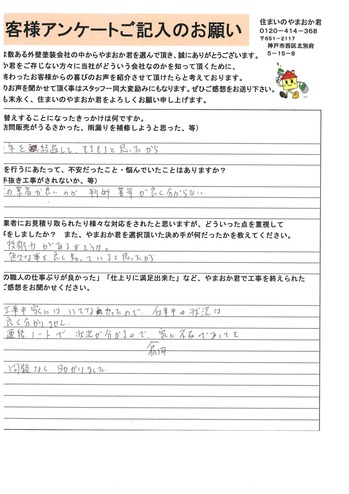 客様アンケートご記入のお願い
住まいのやまおか君
0120-414-368
〒651-2117
神戸市西区北別府
5-15-8
は数ある外壁塗装会社の中からやまおか君を選んで頂き、誠にありがとうございます。
か君をご存じない方々に当社がどういう会社なのかを知って頂くために、
終わったお客様からの喜びのお声を紹介させて頂けたらと考えております。
のお声を聞かせて頂く事はスタッフ一同大変励みにもなります。ぜひご感想をお送り下さい。
も末永く、住まいのやまおか君をよろしくお願い申し上げます。
替えすることになったきっかけは何ですか。
訪問販売がうるさかった、雨漏りを補修しようと思った、等)
年を経過し、そろそろと思ったから
を行うにあたって、不安だったこと・悩んでいたことはありますか?
手抜き工事がないか、等)
の業者が良いのか 判断 基準が良く分からない
業者にお見積り取られたり様々な対応をされたと思いますが、どういった点を重視して
びをしましたか? また、やまおか君を選択頂いた決め手が何だったかを教えてください。
技術力があるかどうか。
色々な事を良く知っていると思ったから
の職人の仕事ぶりが良かった」「仕上りに満足出来た」など、やまおか君で工事を終えられた
ご感想をお聞かせください。
工事中家にはいてなかったので、仕事中の状況は
良く分りません。
連絡ノートで 状況が分かるので、家に不在であっても
問題なく助かりました。